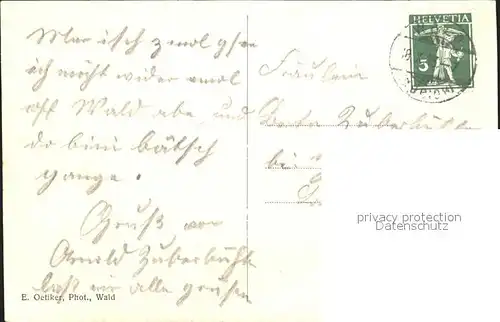 Mer isch z mol gsee
ich möcht wider emol
uff Wald abe, und
do bini bätsch
gange.
Gruß von
Arnold Zuberbühl
lass wir alle grüsen
E. Oetiker, Phot., Wald
HELVETIA
5
Fräulein
Berta Zuberbühle
bei
privacy protection
Datenschutz